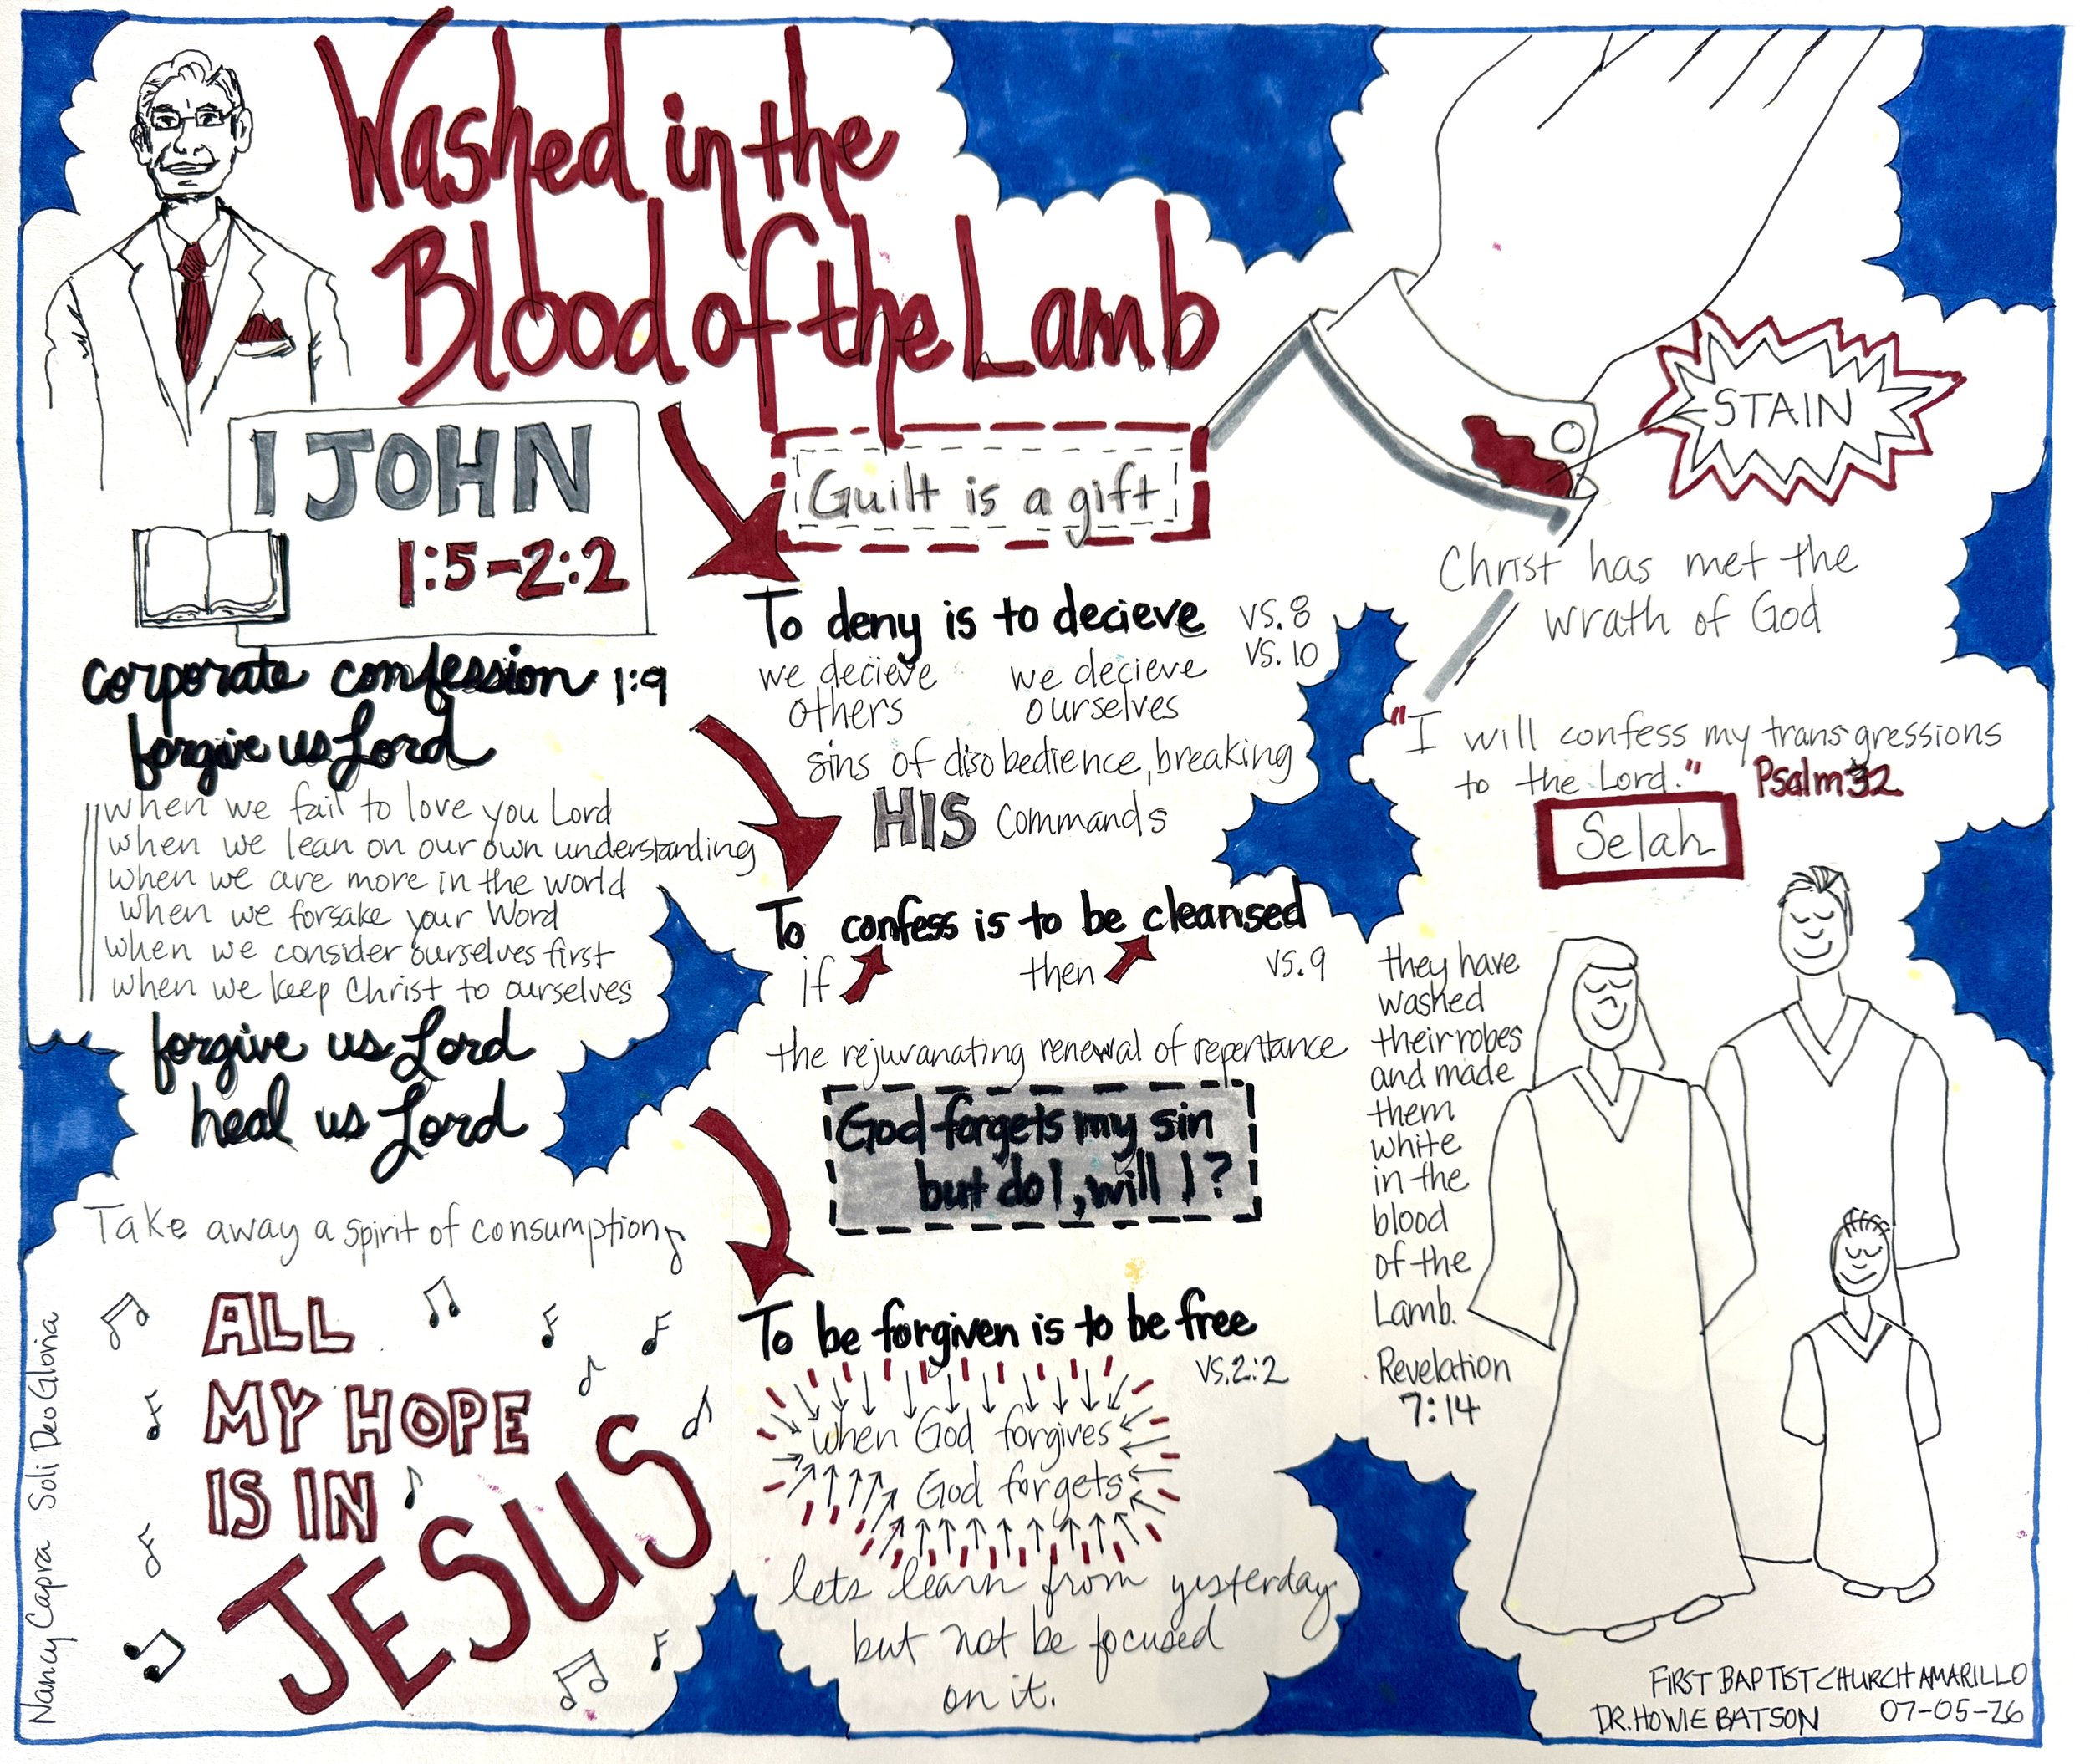 Washed in the
Blood of the Lamb
I JOHN
1:5-2:2
corporate confession 1:9
forgive us Lord
when we fail to love you Lord
when we lean on our own understanding
when we are more in the world
when we forsake your Word
when we consider ourselves first
when we keep Christ to ourselves
forgive us Lord
heal us Lord
Take away a spirit of consumption
ALL
MY HOPE
IS IN
JESUS
Nancy Capra Soli Deo Gloria
Guilt is a gift
To deny is to decieve vs. 8
vs. 10
we decieve
others
we decieve
ourselves
sins of disobedience, breaking
HIS commands
To confess is to be cleansed
if then vs. 9
the rejuvanating renewal of repentance
God forgets my sin
but do I, will I?
To be forgiven is to be free
vs. 2:2
when God forgives
God forgets
lets learn from yesterday
but not be focused
on it.
STAIN
Christ has met the
wrath of God
"I will confess my transgressions
to the Lord." Psalm 32
Selah
they have
washed
their robes
and made
them
white
in the
blood
of the
Lamb.
Revelation
7:14
FIRST BAPTIST CHURCH AMARILLO
DR. HOWIE BATSON 07-05-26